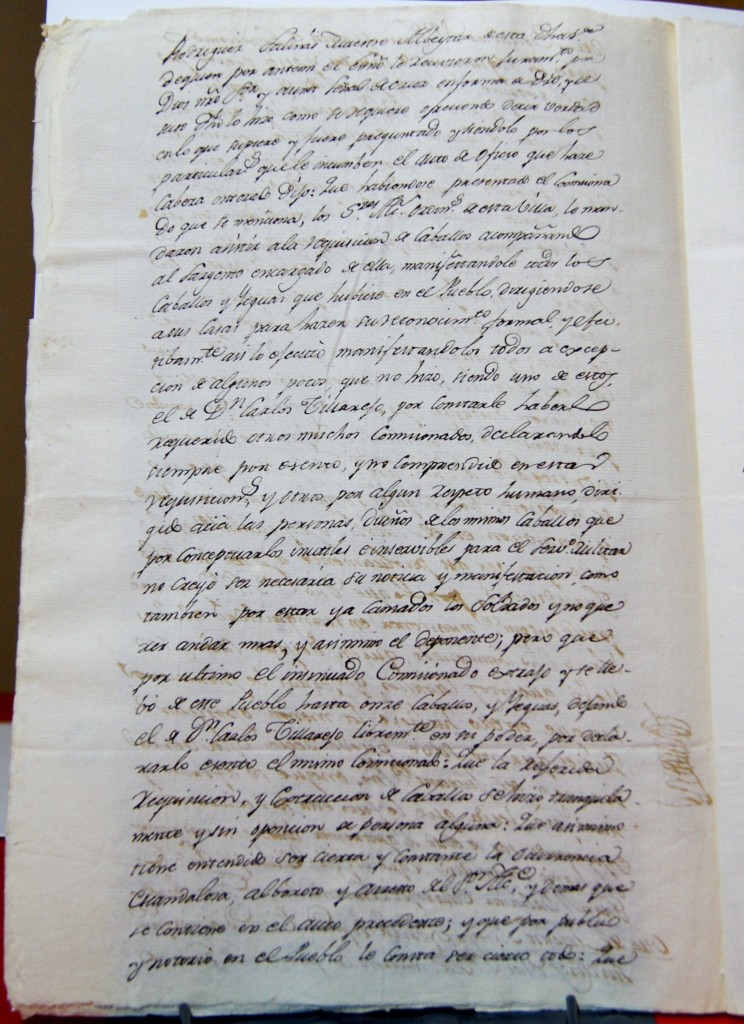 Rodriguez Salinas Maestro Albeytar de esta dha
de quien por antemi el Essno le recivieron juramto por
Dios nro Sor, y a una señal de cruz en forma de Dro, y de
suio Dho lo hizo como se requiere ofreciendo decir verdad
en lo que supiere y fuere preguntado y siendolo por los
particulares que le incumben el auto de oficio que hace
Cabeza enterado Dijo: Que habiendose presentado el Comisiona
do que se menciona, los Sres Alc. Ordins de esta Villa, lo man-
daron asistir a la requisicion de Caballos acompañando
al Sargento encargado de ella, manifestandole todos los
Caballos y Yeguas que hubiese en el Pueblo, dirigiendose
a sus Casas para hazer su reconocimto formal y efec-
tibamte asi lo efectuó manifestandolos todos a excep-
cion de algunos pocos, que no hizo, siendo uno de estos,
el de Dn Carlos Villarejo, por constarle haberlo
requerido otros muchos Comisionados, declarandolo
siempre por esento, y no comprendido en esta
requisicion, y otros por algun respeto humano, diri-
gido acia las personas, dueños de los mismos Caballos que
por conceptuarlos inutiles e inservibles para el servo Militar
no creyó ser necesaria su noticia y manifestacion, como
tambien por estar ya cansados los Soldados y no que
rer andar mas, y asimismo el deponente; pero que
por ultimo el insinuado Comisionado extrajo y se lle-
bó de este Pueblo hasta onze Caballos, y Yeguas, dejando
el de Dn Carlos Villarejo libremte en su poder, por decla-
rarlo esento el mismo Comisionado: Que la referida
requisicion, y Extraccion de Caballos se hizo tranquila
mente y sin oposicion de persona alguna: Que asimismo
tiene entendido ser cierta y constante la Ocurrencia
Escandalosa, alboroto y arresto del Sr Alc, y demas que
se contiene en el auto precedente; y que por publico
y notorio en el Pueblo le consta ser cierto todo: Que